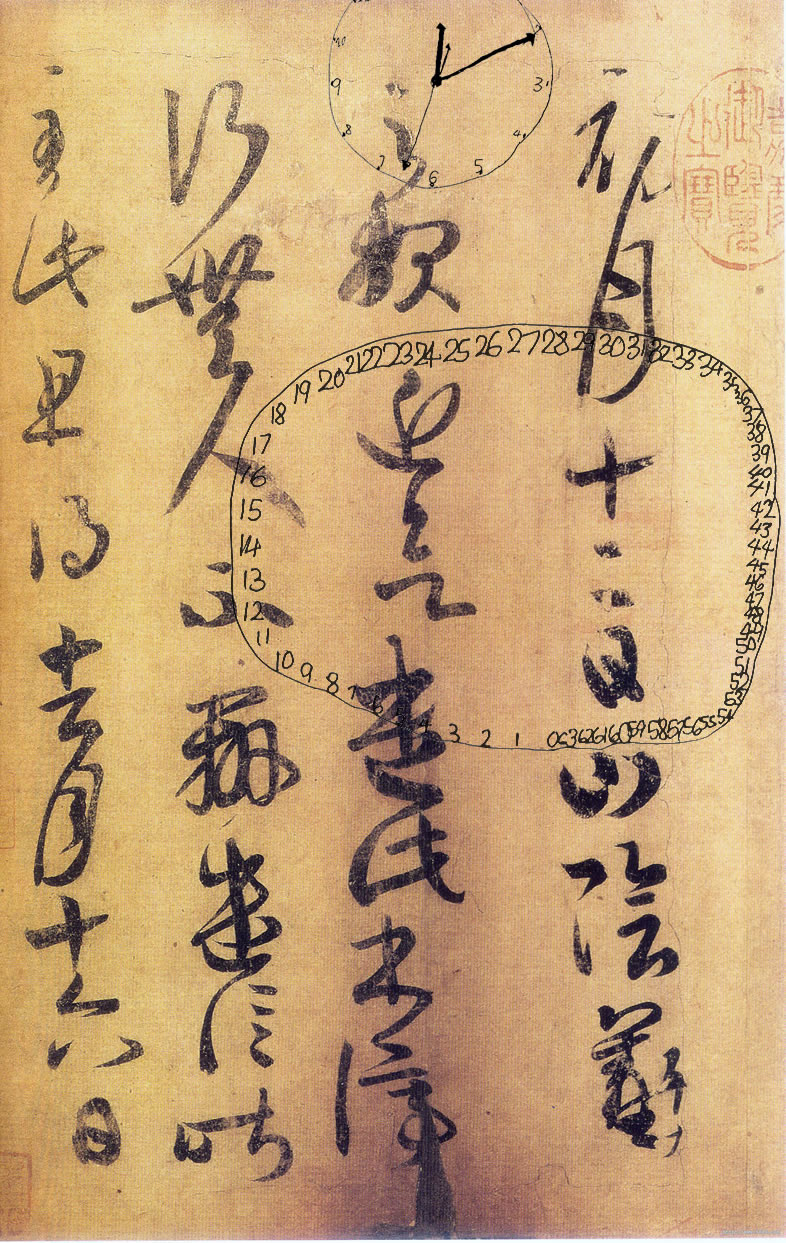 初月十二日山陰羲
之報近欲遣此書停
行無人不辦遣信昨
至此且得去月十六日
御覽之寶
2 3 4 5 6 7 8 9 10
0 1 2 3 4 6 7 8 9 10 11 12 13 14 15 16 17 18 19 20 21 22 23 24 25 26 27 28 29 30 31 32 33 34 35 36 37 38 39 40 41 42 43 44 45 46 47 48 49 50 51 52 53 54 55 56 57 58 59 60 61 62 63